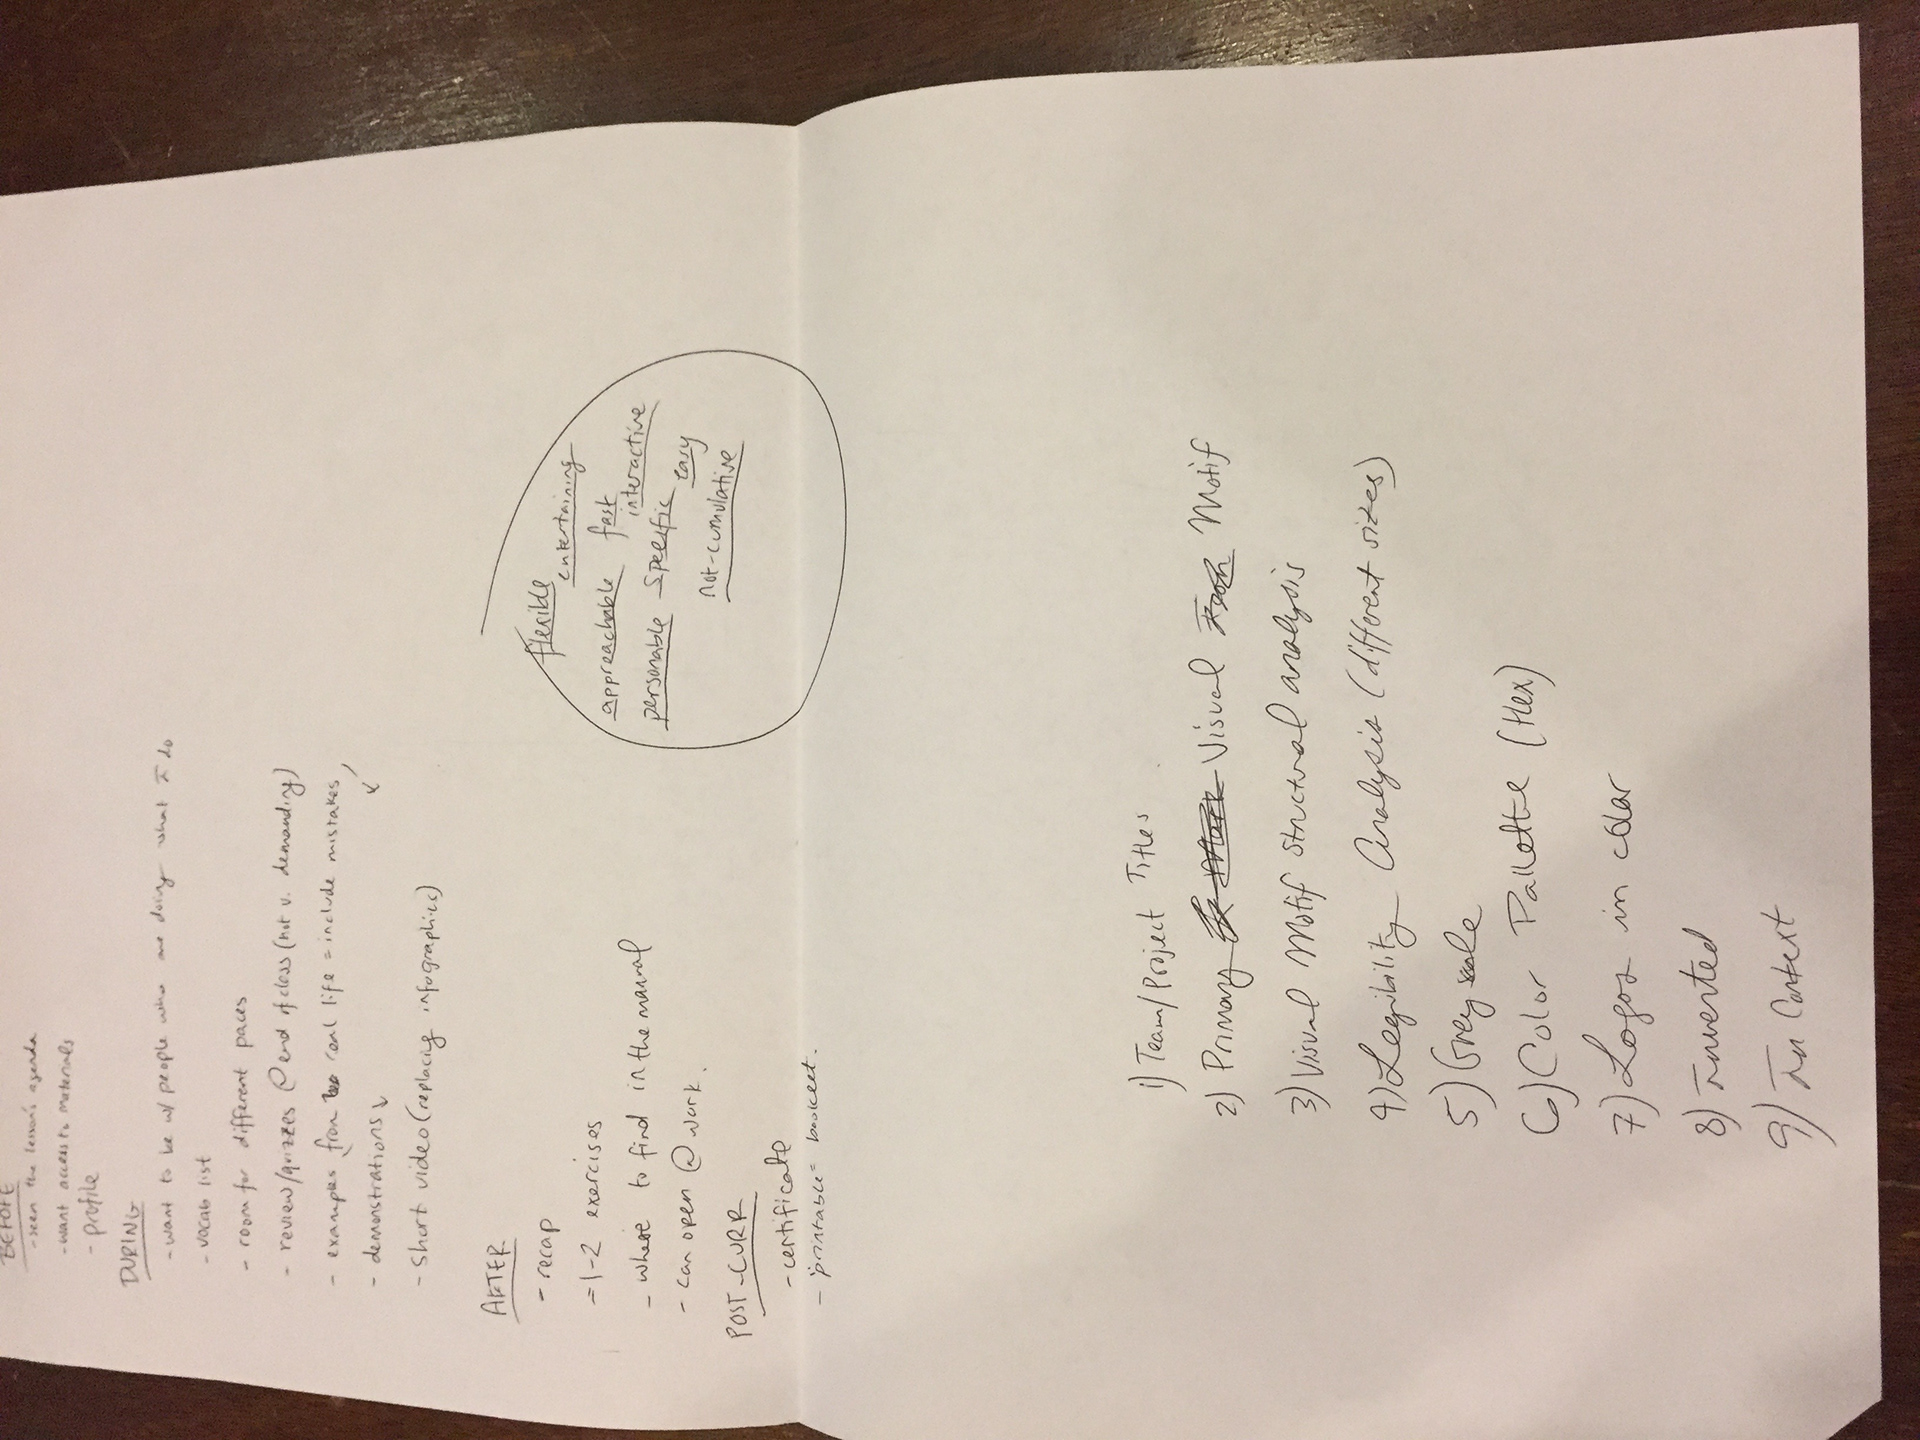 BEFORE
- seen the lesson's agenda
- want access to materials
- profile
DURING
- want to be w/ people who are doing what I do
- vocab list
- room for different paces
- review/quizzes @ end of class (not v. demanding)
- examples from real life = include mistakes
- demonstrations
- short video (replacing infographics)
AFTER
- recap
= 1-2 exercises
- where to find in the manual
- can open @ work.
POST-CURR
- certificate
- printable = booklet.
flexible
entertaining
approachable fast
interactive
personable specific easy
not-cumulative
1) Team/Project Titles
2) Primary Visual Motif
3) Visual Motif structural analysis
4) Legibility Analysis (different sizes)
5) Grey scale
6) Color Pallette (Hex)
7) Logos in color
8) Inverted
9) In Context